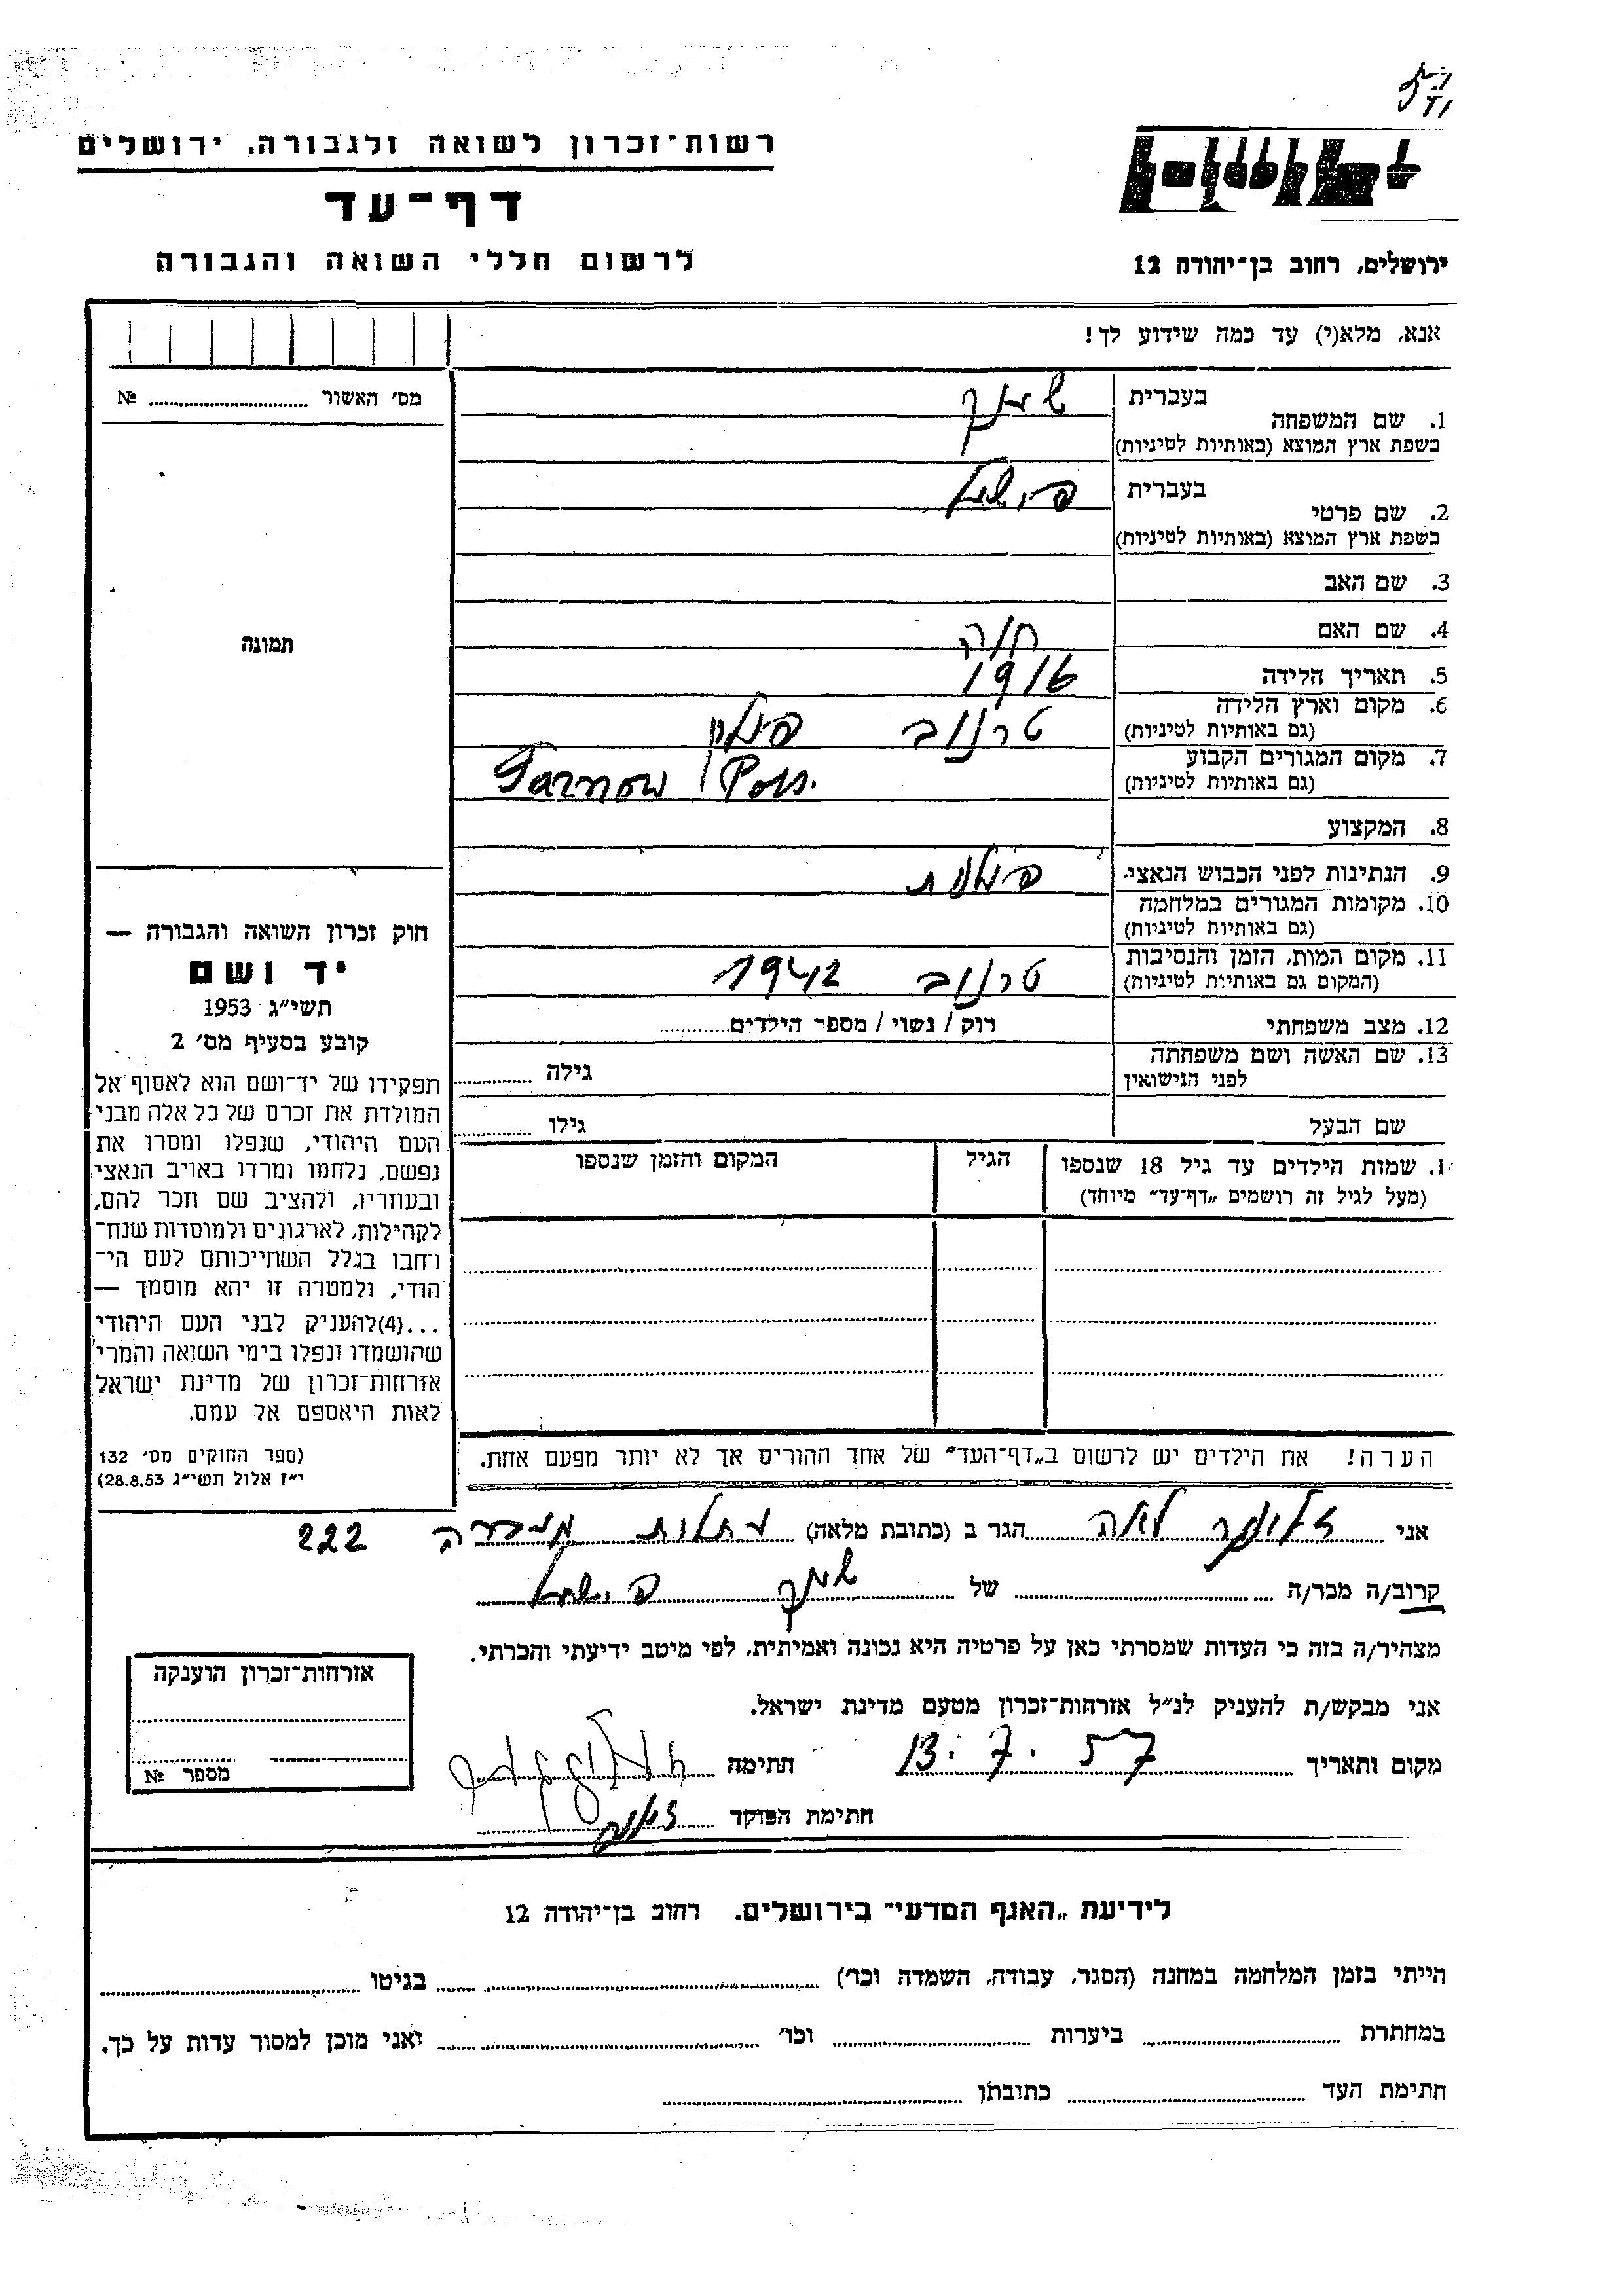 רשות־זכרון לשואה ולגבורה, ירושלים
דף־עד
לרשום חללי השואה והגבורה
ירושלים, רחוב בן־יהודה 12
אנא, מלא(י) עד כמה שידוע לך!
מס׳ האשור № 
בעברית
1. שם המשפחה
בשפת ארץ המוצא (באותיות לטיניות)
בעברית
2. שם פרטי
בשפת ארץ המוצא (באותיות לטיניות)
3. שם האב
4. שם האם חוה
5. תאריך הלידה 1916
6. מקום וארץ הלידה טרנוב פולין
(גם באותיות לטיניות)
7. מקום המגורים הקבוע Tarnow
(גם באותיות לטיניות)
8. המקצוע
9. הנתינות לפני הכבוש הנאצי פולנית
10. מקומות המגורים במלחמה
(גם באותיות לטיניות)
11. מקום המות, הזמן והנסיבות טרנוב 1942
(המקום גם באותיות לטיניות)
12. מצב משפחתי רוק / נשוי / מספר הילדים
13. שם האשה ושם משפחתה גילה
לפני הנישואין
שם הבעל גילו
1. שמות הילדים עד גיל 18 שנספו הגיל המקום והזמן שנספו
(מעל לגיל זה רושמים „דף־עד״ מיוחד)
הערה! את הילדים יש לרשום ב„דף־העד״ של אחד ההורים אך לא יותר מפעם אחת.
תמונה
חוק זכרון השואה והגבורה —
יד ושם
תשי״ג 1953
קובע בסעיף מס׳ 2
תפקידו של יד־ושם הוא לאסוף אל
המולדת את זכרם של כל אלה מבני
העם היהודי, שנפלו ומסרו את
נפשם, נלחמו ומרדו באויב הנאצי
ובעוזריו, ולהציב שם וזכר להם,
לקהילות, לארגונים ולמוסדות שנח־
רבו בגלל השתייכותם לעם הי־
הודי, ולמטרה זו יהא מוסמך —
...(4)להעניק לבני העם היהודי
שהושמדו ונפלו בימי השואה והמרי
אזרחות־זכרון של מדינת ישראל
לאות היאספם אל עמם.
(ספר החוקים מס׳ 132
י״ז אלול תשי״ג 28.8.53)
אני לאה הגר ב (כתובת מלאה) 222
קרוב/ה מכר/ה של
מצהיר/ה בזה כי העדות שמסרתי כאן על פרטיה היא נכונה ואמיתית, לפי מיטב ידיעתי והכרתי.
אני מבקש/ת להעניק לנ״ל אזרחות־זכרון מטעם מדינת ישראל.
מקום ותאריך 13.7.57 חתימה
חתימת הפוקד
אזרחות־זכרון הוענקה
מספר №
לידיעת „האגף המדעי״ בירושלים, רחוב בן־יהודה 12
הייתי בזמן המלחמה במחנה (הסגר, עבודה, השמדה וכו׳) בגיטו
במחתרת ביערות וכו׳ ואני מוכן למסור עדות על כך.
חתימת העד כתובתו